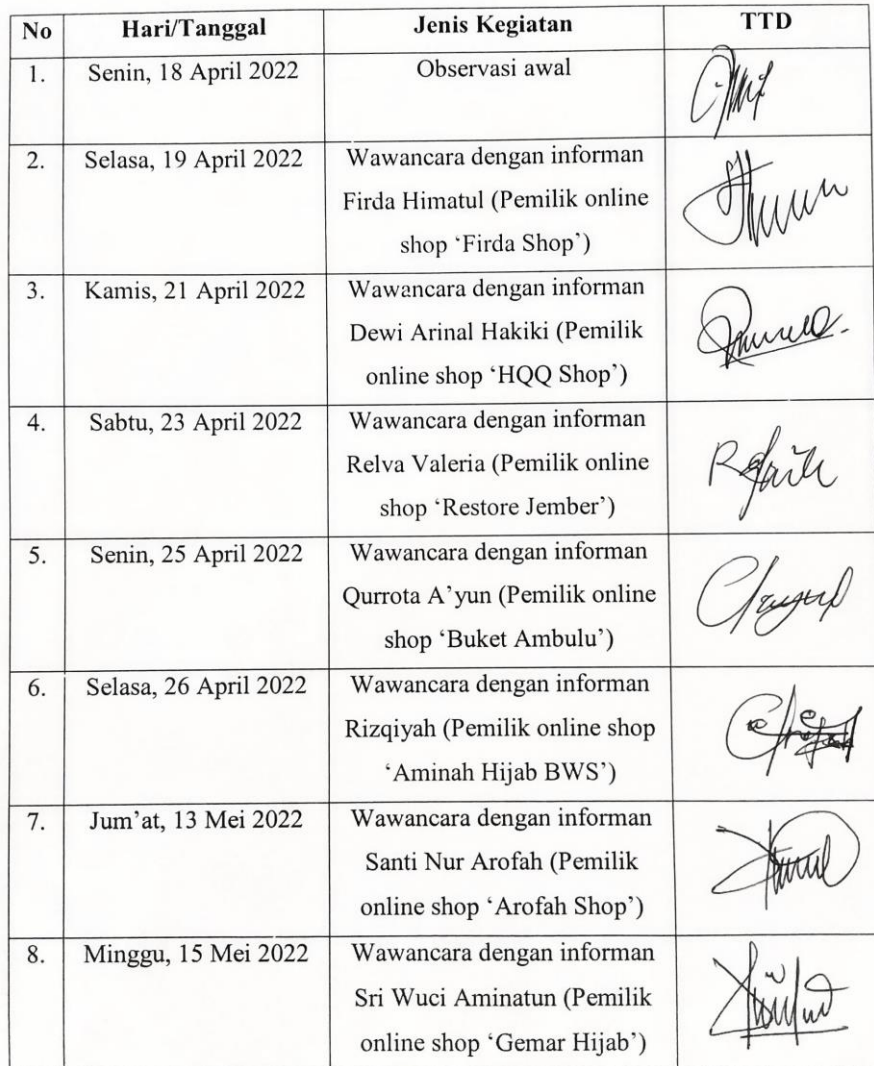 No Hari/Tanggal Jenis Kegiatan TTD
1. Senin, 18 April 2022 Observasi awal
2. Selasa, 19 April 2022 Wawancara dengan informan
Firda Himatul (Pemilik online
shop ‘Firda Shop’)
3. Kamis, 21 April 2022 Wawancara dengan informan
Dewi Arinal Hakiki (Pemilik
online shop ‘HQQ Shop’)
4. Sabtu, 23 April 2022 Wawancara dengan informan
Relva Valeria (Pemilik online
shop ‘Restore Jember’)
5. Senin, 25 April 2022 Wawancara dengan informan
Qurrota A’yun (Pemilik online
shop ‘Buket Ambulu’)
6. Selasa, 26 April 2022 Wawancara dengan informan
Rizqiyah (Pemilik online shop
‘Aminah Hijab BWS’)
7. Jum’at, 13 Mei 2022 Wawancara dengan informan
Santi Nur Arofah (Pemilik
online shop ‘Arofah Shop’)
8. Minggu, 15 Mei 2022 Wawancara dengan informan
Sri Wuci Aminatun (Pemilik
online shop ‘Gemar Hijab’)